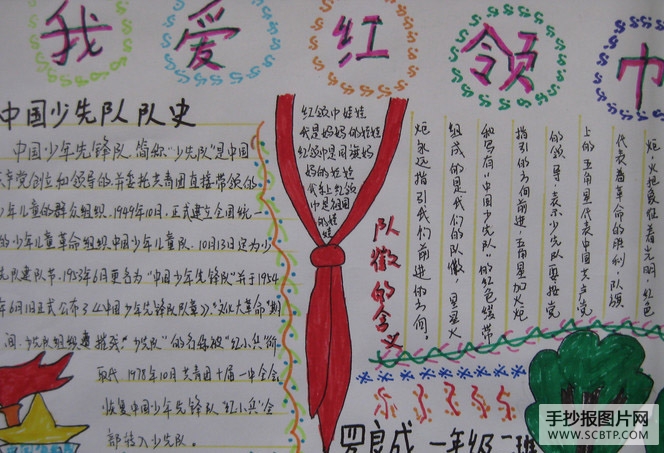 我爱红领巾
中国少先队队史
中国少年先锋队,简称"少先队"是中国
产党创立和领导的,并委托共青团直接带领的
少年儿童的群众组织。1949年10月,正式建立全国统一
的少年儿童革命组织中国少年儿童队,10月13日定为少
先队建队节。1953年6月更名为"中国少年先锋队"并于1954
年6月1日正式公布了《中国少年先锋队队章》。"文化大革命"期
间,少先队组织遭摧残,"少先队"的名称被"红小兵"所
取代,1978年10月共青团十届一中全会
恢复中国少年先锋队,"红小兵"全
部转入少先队。
红领巾娃娃
我是妈妈的娃娃
红领巾是
妈的娃娃
我戴上红领
巾是祖国
的娃娃
队徽的含义
炬,火把象征着光明,红色
代表着革命的胜利,队旗
上的五角星代表中国共产党
的领导,表示少先队要按党
指引的方向前进,五角星加火炬
和写有"中国少先队"的红色绶带
组成的是我们的队徽,星星火
炬永远指引我们前进的方向。
罗良成 一年级二班
手抄报图片网
WWW.SCBTP.COM